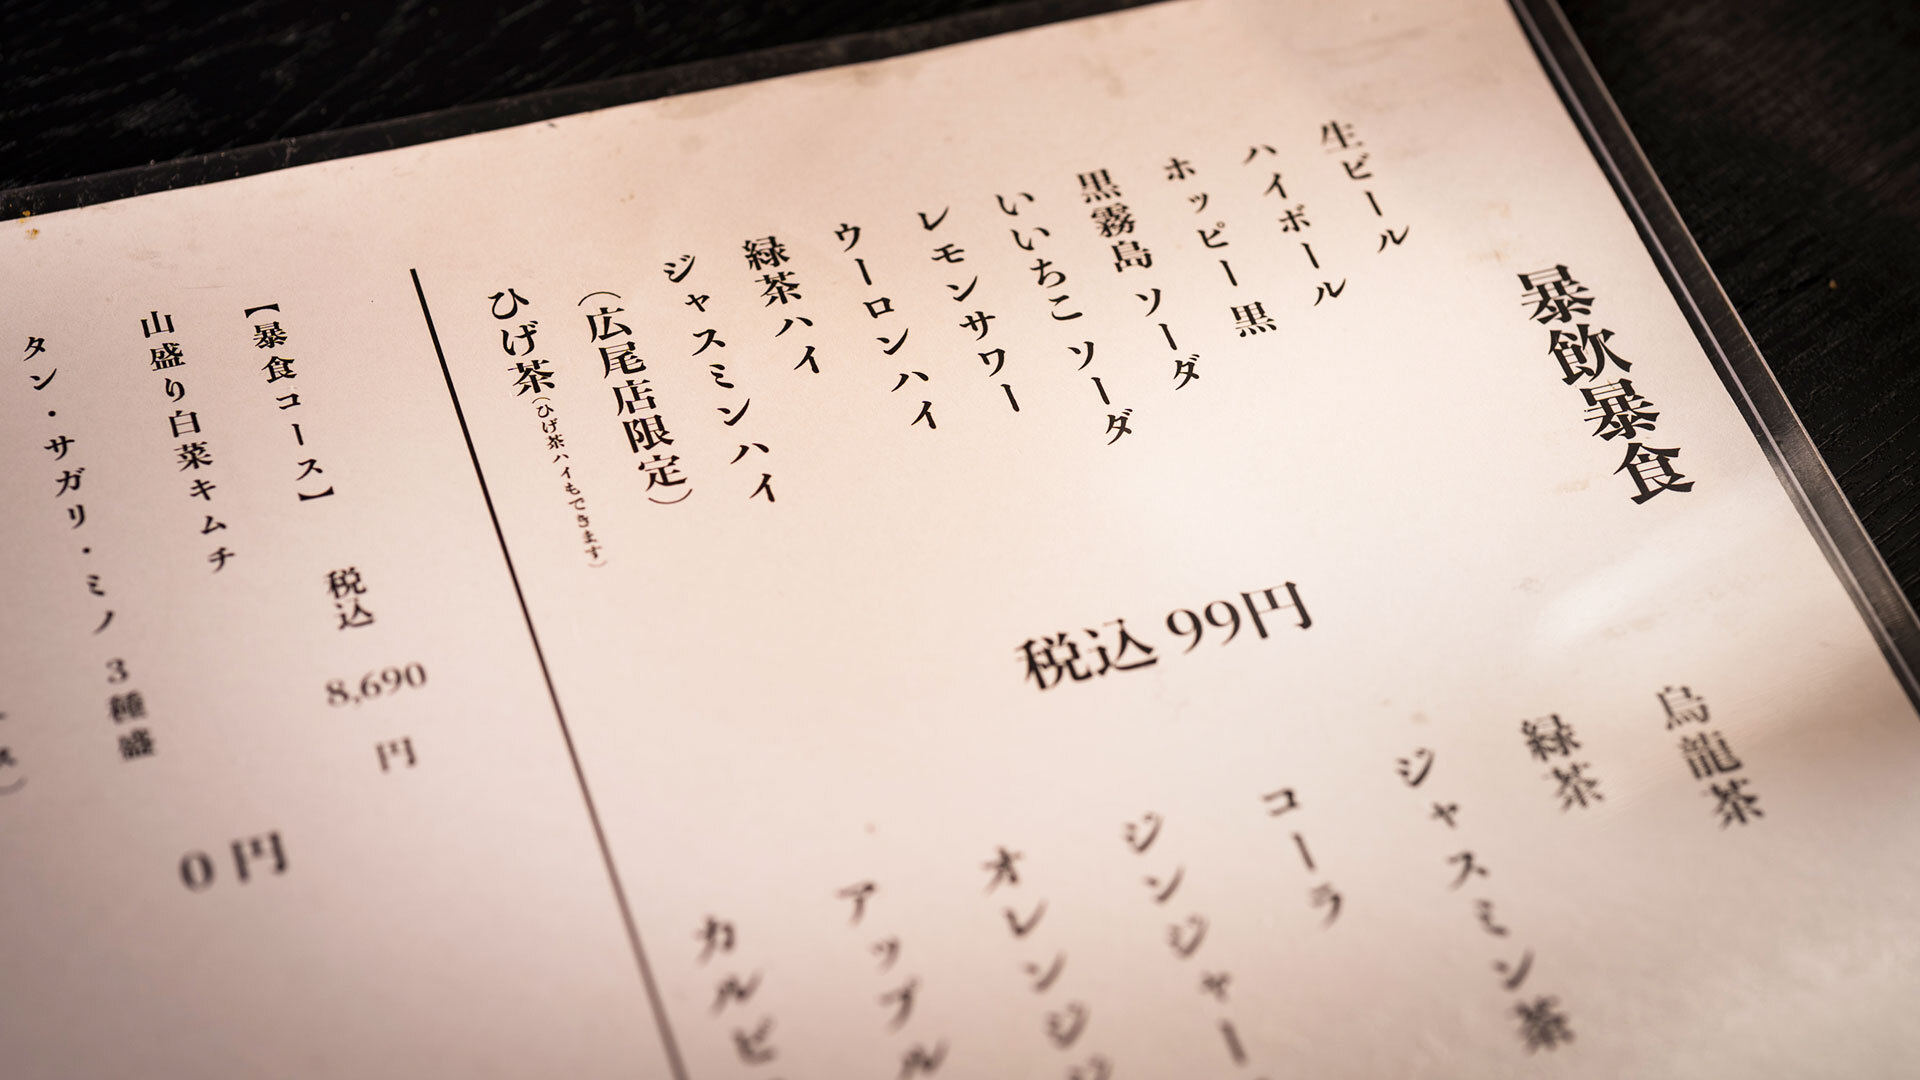 暴飲暴食
生ビール
ハイボール
ホッピー 黒
黒霧島 ソーダ
いいちこ ソーダ
レモンサワー
ウーロンハイ
緑茶ハイ
ジャスミンハイ
(広尾店限定)
ひげ茶(ひげ茶ハイもできます)
税込99円
烏龍茶
緑茶
ジャスミン茶
コーラ
ジンジャー
オレンジ
アップル
カルピ
【暴食コース】 税込 8,690 円
山盛り白菜キムチ
タン・サガリ・ミノ 3種盛
0円